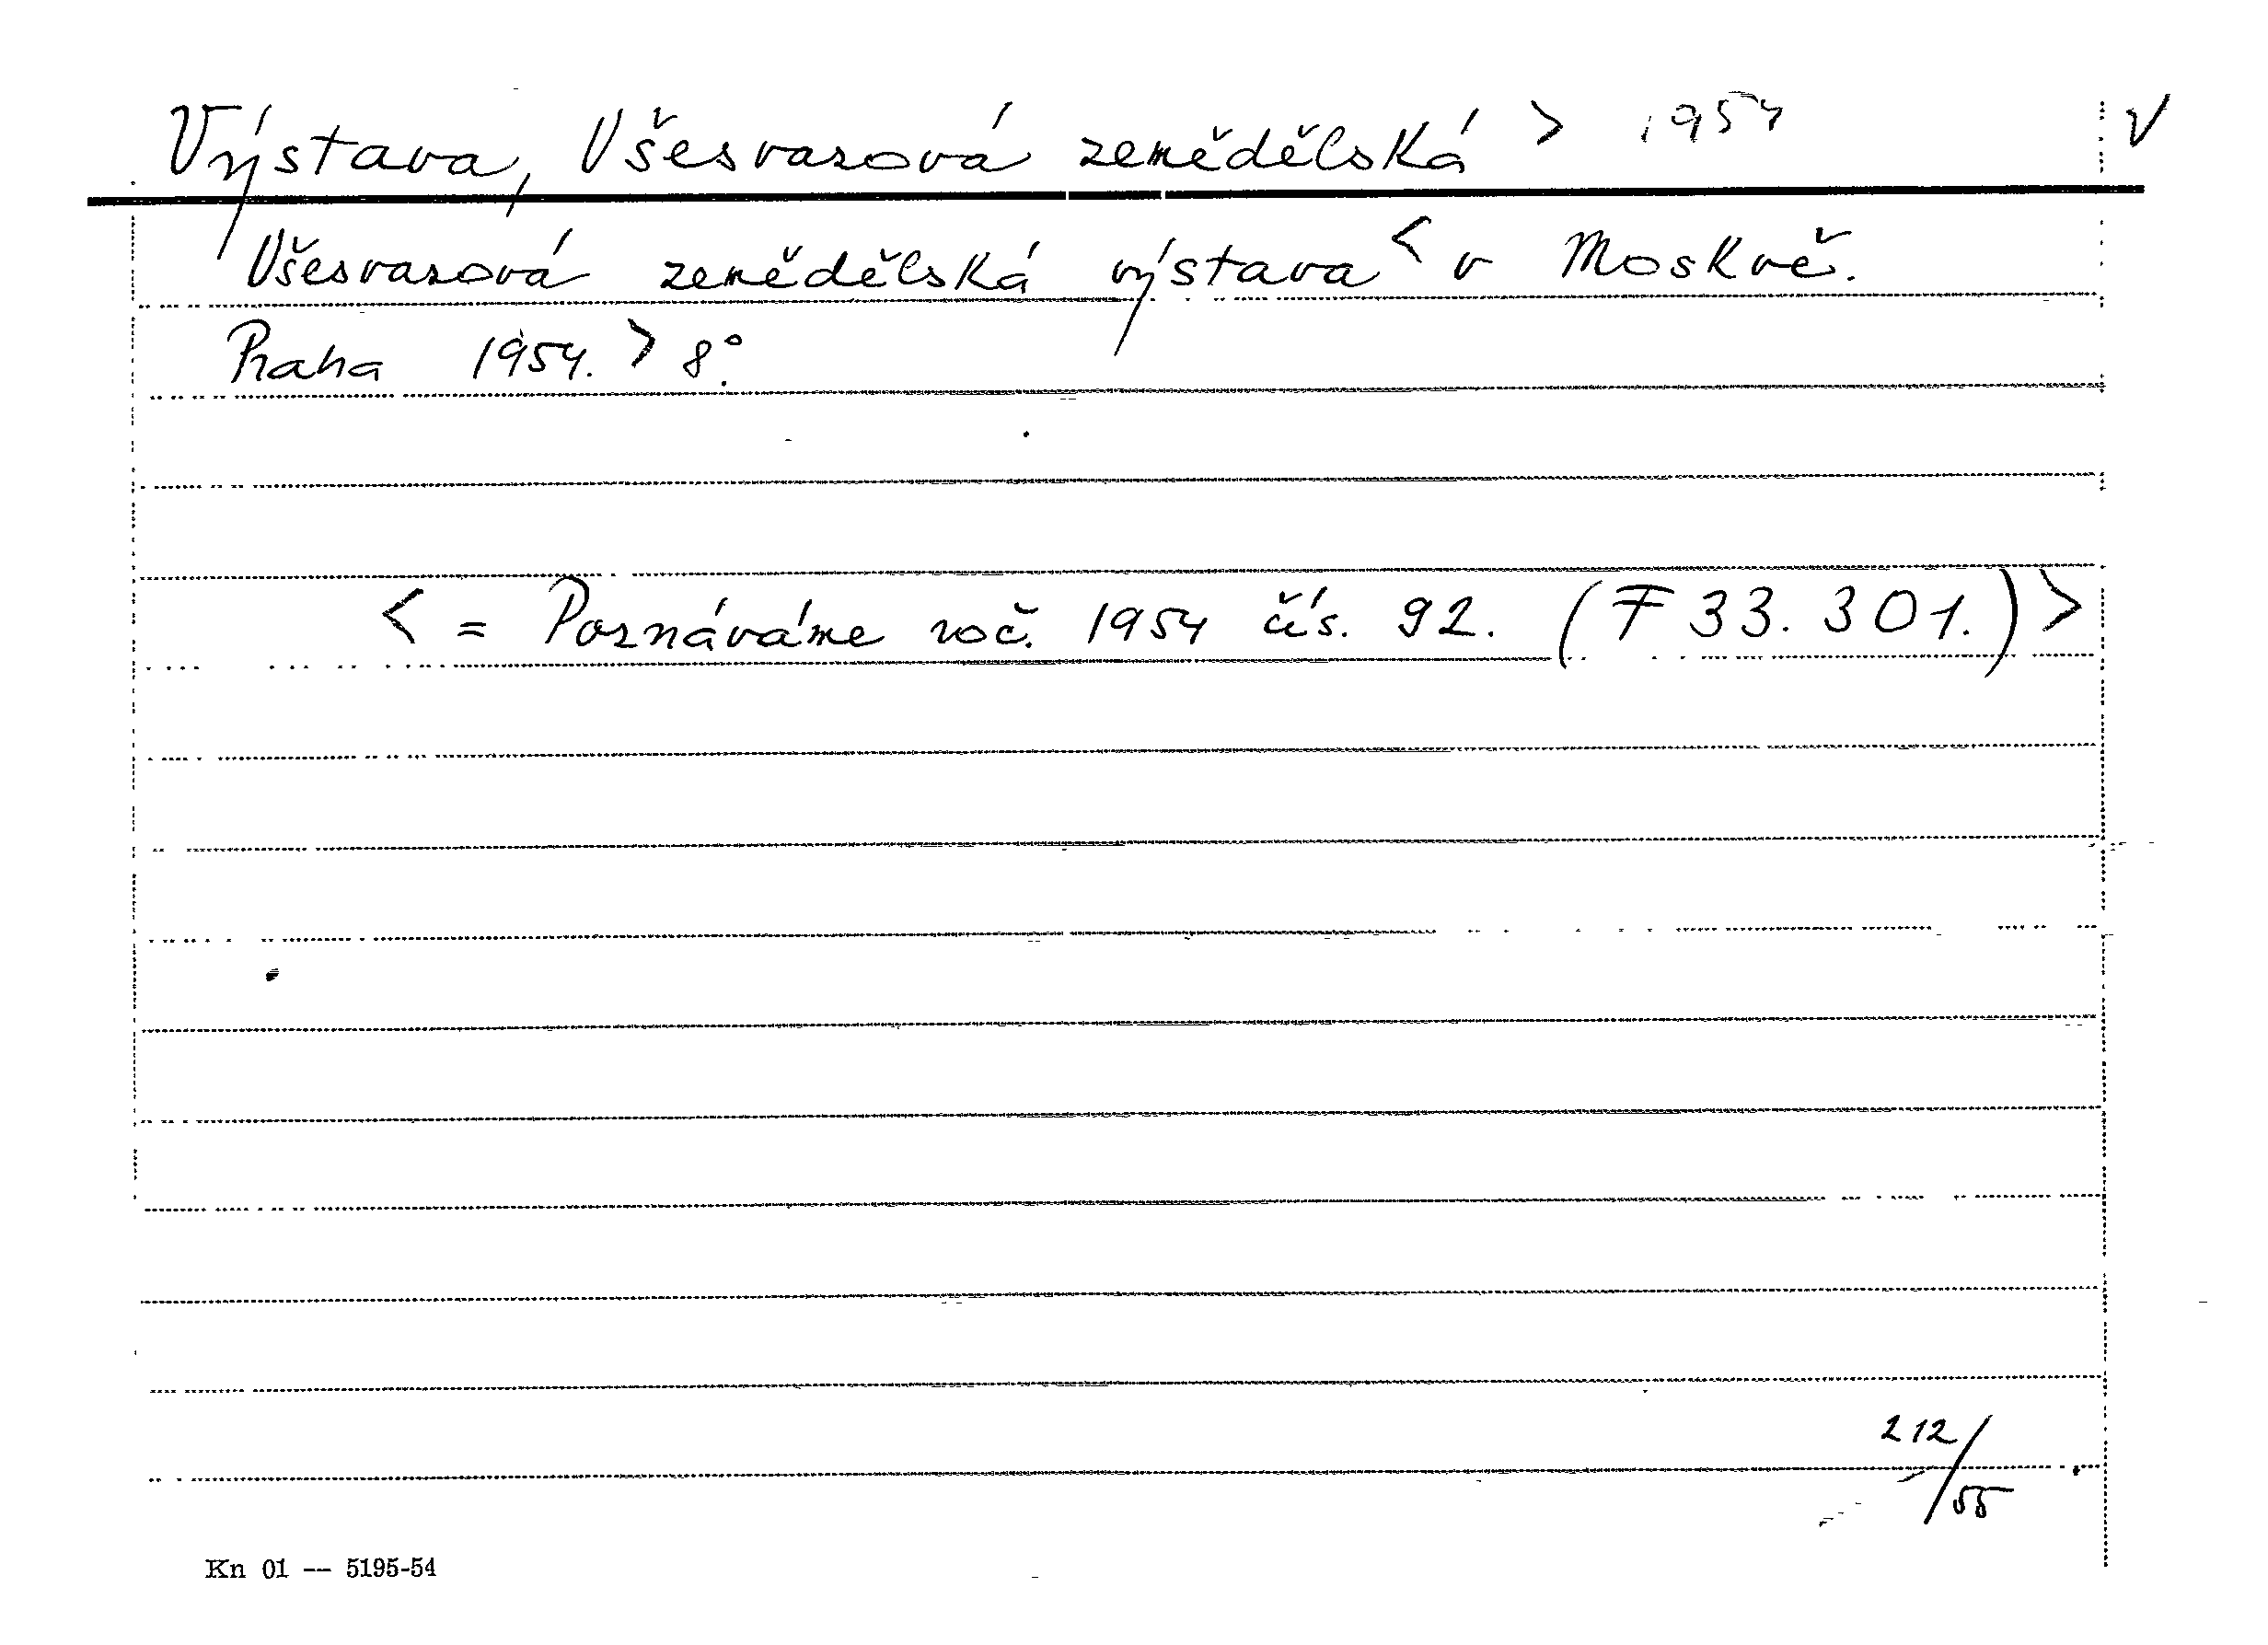 Výstava, Všesvazová zemědělská > 1954 V
Všesvazová zemědělská výstava < v Moskvě.
Praha 1954. > 8°.
< = Poznáváme roč. 1954 čís. 92. (F 33.301.) >
212/55
Kn 01 — 5195-54